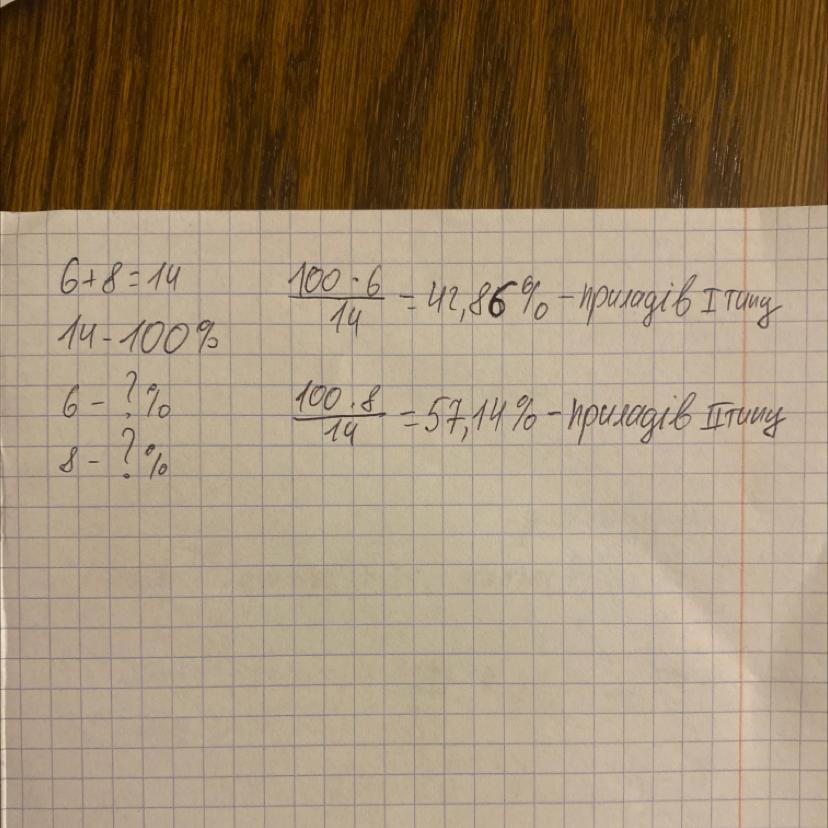 6+8=14
14-100%
6 - ?%
8 - ?%
100·6/14 = 42,86% - приладів I типу
100·8/14 = 57,14% - приладів II типу